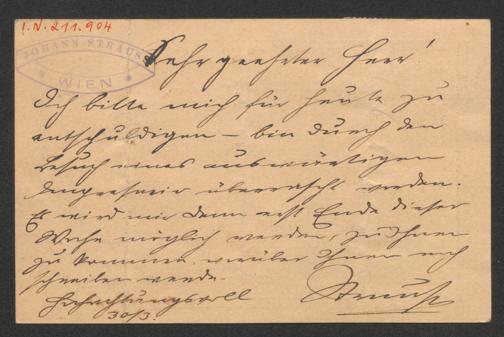 I.N. 211.904
JOHANN STRAUSS
WIEN
Sehr geehrter Herr!
Ich bitte mich für heute zu
entschuldigen – bin durch den
Besuch eines auswärtigen
Impresario überrascht worden.
Es wird mir dann erst Ende dieser
Woche möglich werden, zu Ihnen
zu kommen, worüber Ihnen noch
schreiben werde.
Hochachtungsvoll
Strauss
30/3.